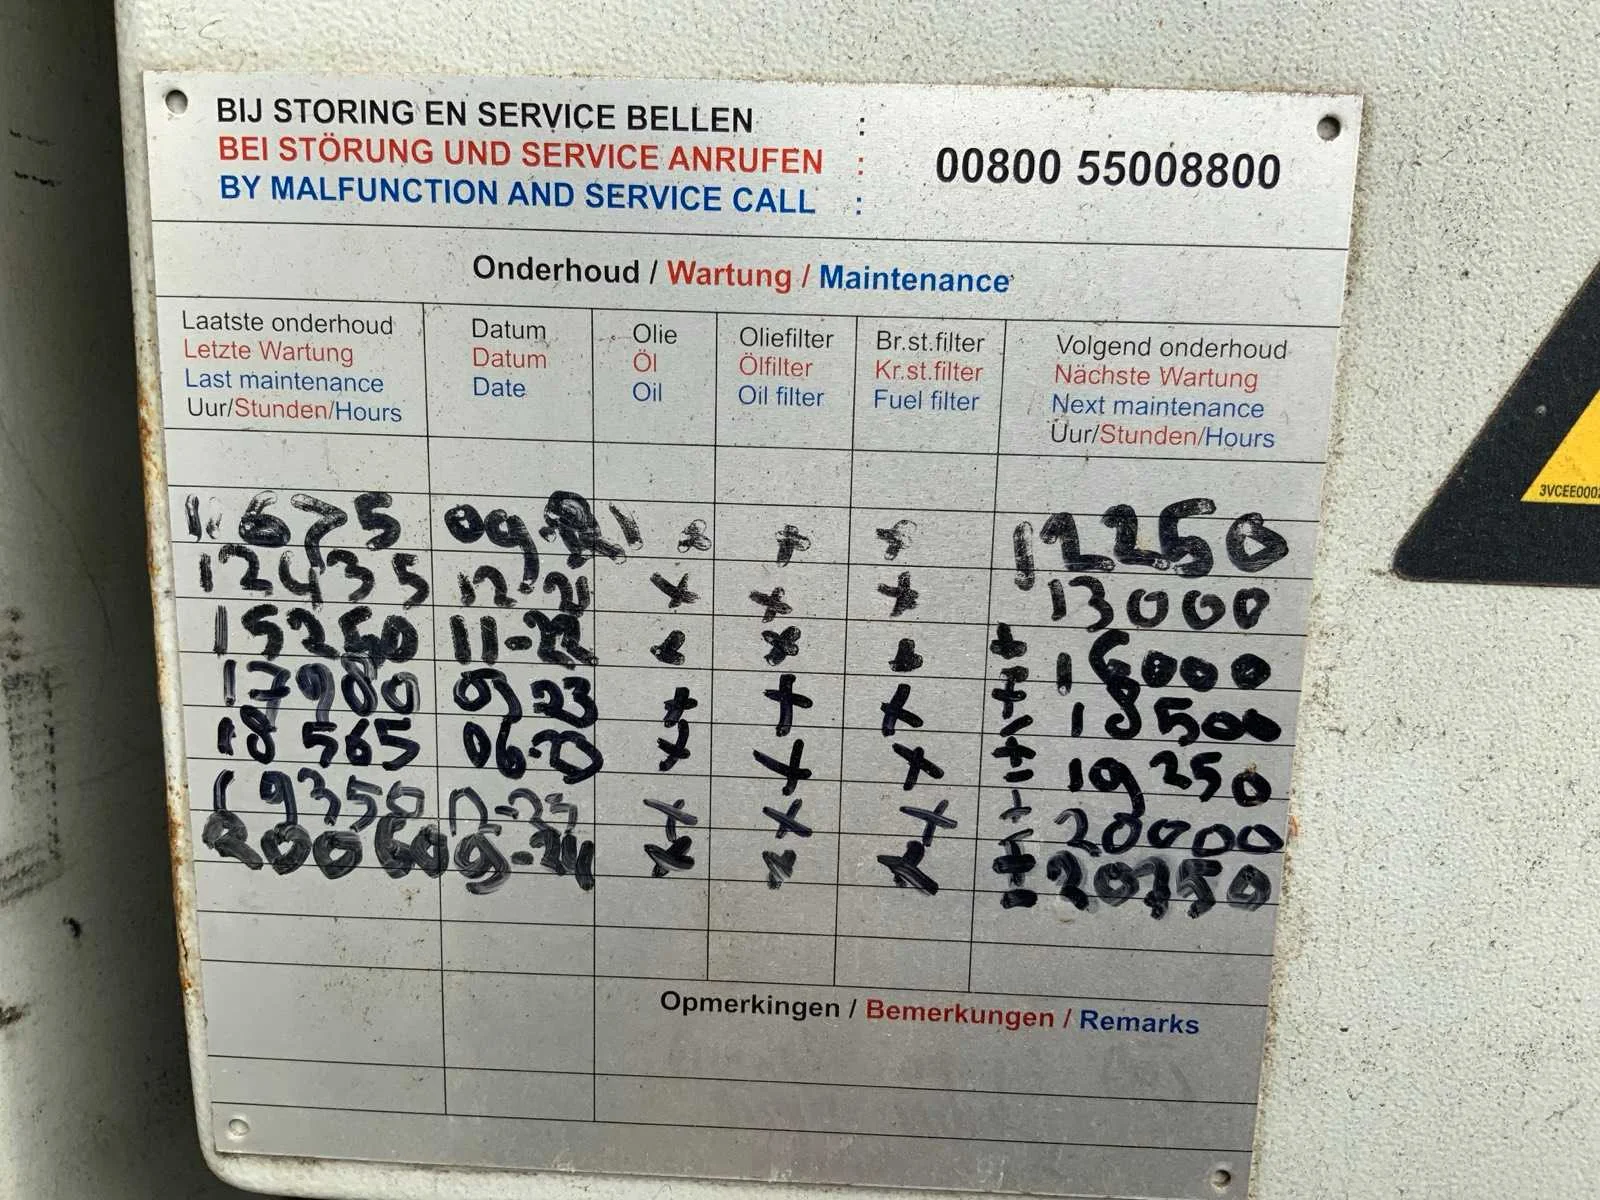 BIJ STORING EN SERVICE BELLEN :
BEI STÖRUNG UND SERVICE ANRUFEN : 00800 55008800
BY MALFUNCTION AND SERVICE CALL :
Onderhoud / Wartung / Maintenance
Laatste onderhoud Datum Olie Oliefilter Br.st.filter Volgend onderhoud
Letzte Wartung Datum Öl Ölfilter Kr.st.filter Nächste Wartung
Last maintenance Date Oil Oil filter Fuel filter Next maintenance
Uur/Stunden/Hours Uur/Stunden/Hours
11675 09-21 x x x 12250
12435 12-21 x x x 13000
15260 11-22 x x x ± 16000
17980 03 23 x x x ± 18500
18565 06-23 x x x ± 19250
19350 x x x ± 20000
20060 05-24 x x x ± 20750
Opmerkingen / Bemerkungen / Remarks